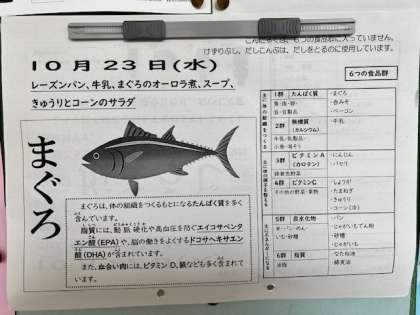 こんにゃくは、6つの食品群に入っていません。
けずりぶし、だしこんぶは、だしをとるのに使用しています。
10月23日(水)
レーズンパン、牛乳、まぐろのオーロラ煮、スープ、
きゅうりとコーンのサラダ
6つの食品群
まぐろ
まぐろは、体の組織をつくるもとになるたんぱく質を多く
含んでいます。
脂質には、動脈硬化や高血圧を防ぐエイコサペンタ
エン酸(EPA)や、脳の働きをよくするドコサヘキサエン
酸(DHA)が含まれています。
また、血合い肉には、ビタミンD、鉄なども多く含まれて
います。
1群 たんぱく質
魚・肉・卵・
豆・豆製品
・まぐろ
・白みそ
・ベーコン
2群 無機質
(カルシウム)
牛乳・乳製品・
小魚・海そう
・牛乳
3群 ビタミンA
(カロテン)
緑黄色野菜
・にんじん
・パセリ
4群 ビタミンC
その他の野菜・果物
・しょうが
・たまねぎ
・きゅうり
・コーン(冷)
5群 炭水化物
米・パン・めん・
いも・砂糖
・パン
・じゃがいもでん粉
・砂糖
・じゃがいも
6群 脂質
油脂
・なたね油
・綿実油